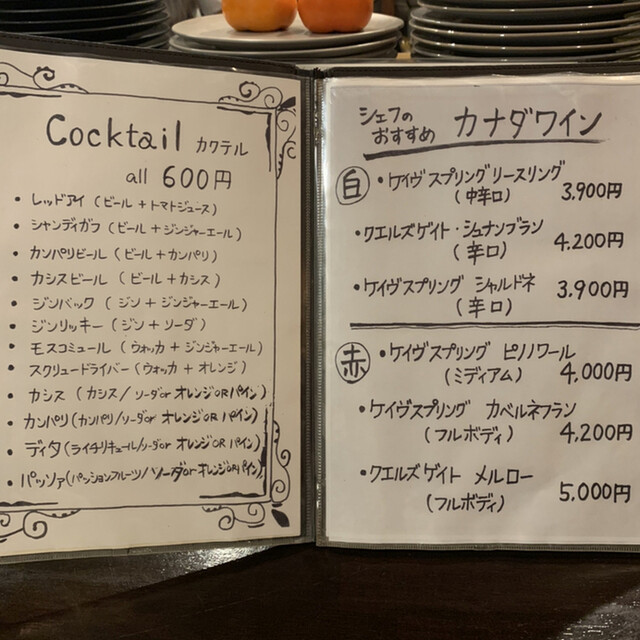 Cocktail カクテル
all 600円
• レッドアイ (ビール + トマトジュース)
• シャンディガフ (ビール + ジンジャーエール)
• カンパリビール (ビール + カンパリ)
• カシスビール (ビール + カシス)
• ジンバック (ジン + ジンジャーエール)
• ジンリッキー (ジン + ソーダ)
• モスコミュール (ウォッカ + ジンジャーエール)
• スクリュードライバー (ウォッカ + オレンジ)
• カシス (カシス/ソーダor オレンジORパイン)
• カンパリ (カンパリ/ソーダor オレンジORパイン)
• ディタ (ライチリキュール/ソーダor オレンジORパイン)
• パッソア (パッションフルーツ/ソーダorオレンジORパイン)
シェフの
おすすめ カナダワイン
白 • ケイヴスプリングリースリング
(中辛口) 3.900円
• クエルズゲイト・シュナンブラン
(辛口) 4.200円
• ケイヴスプリング シャルドネ
(辛口) 3.900円
赤 • ケイヴスプリング ピノノワール
(ミディアム) 4,000円
• ケイヴスプリング カベルネフラン
(フルボディ) 4,200円
• クエルズゲイト メルロー
(フルボディ) 5.000円